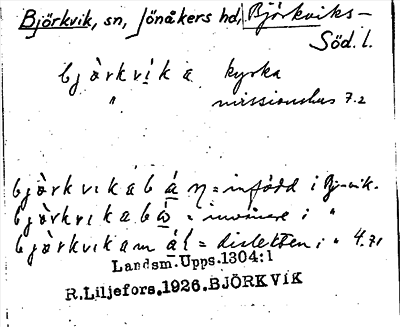 Björkvik, sn, Jönåkers hd, Björkviks-
Söd. l.
bjòrkvìka kyrka
" missionshus 7.2
bjòrkvikabáη = infödd i Bj-vik.
bjòrkvikabò = invånare i "
bjòrkvikamål = dialekten i " 4.71
Landsm.Upps.1304:1
R.Liljefors.1926.BJÖRKVIK